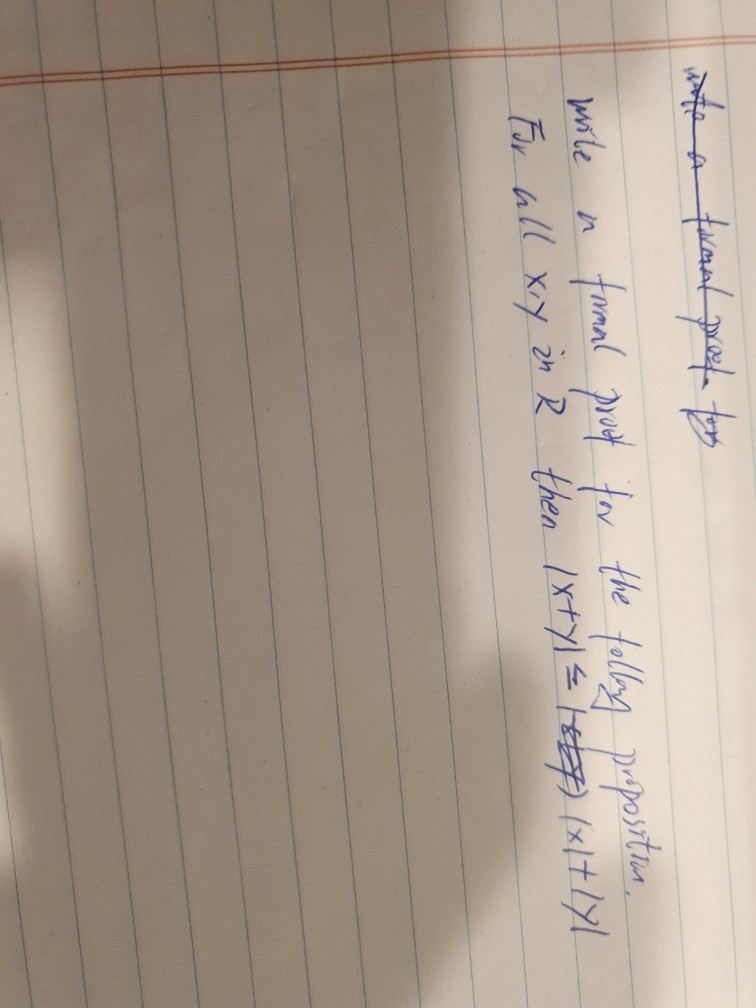 write a formal proof for
write a formal proof for the following proposition.
For all x,y in R then |x+y| ≤ |x|+|y|